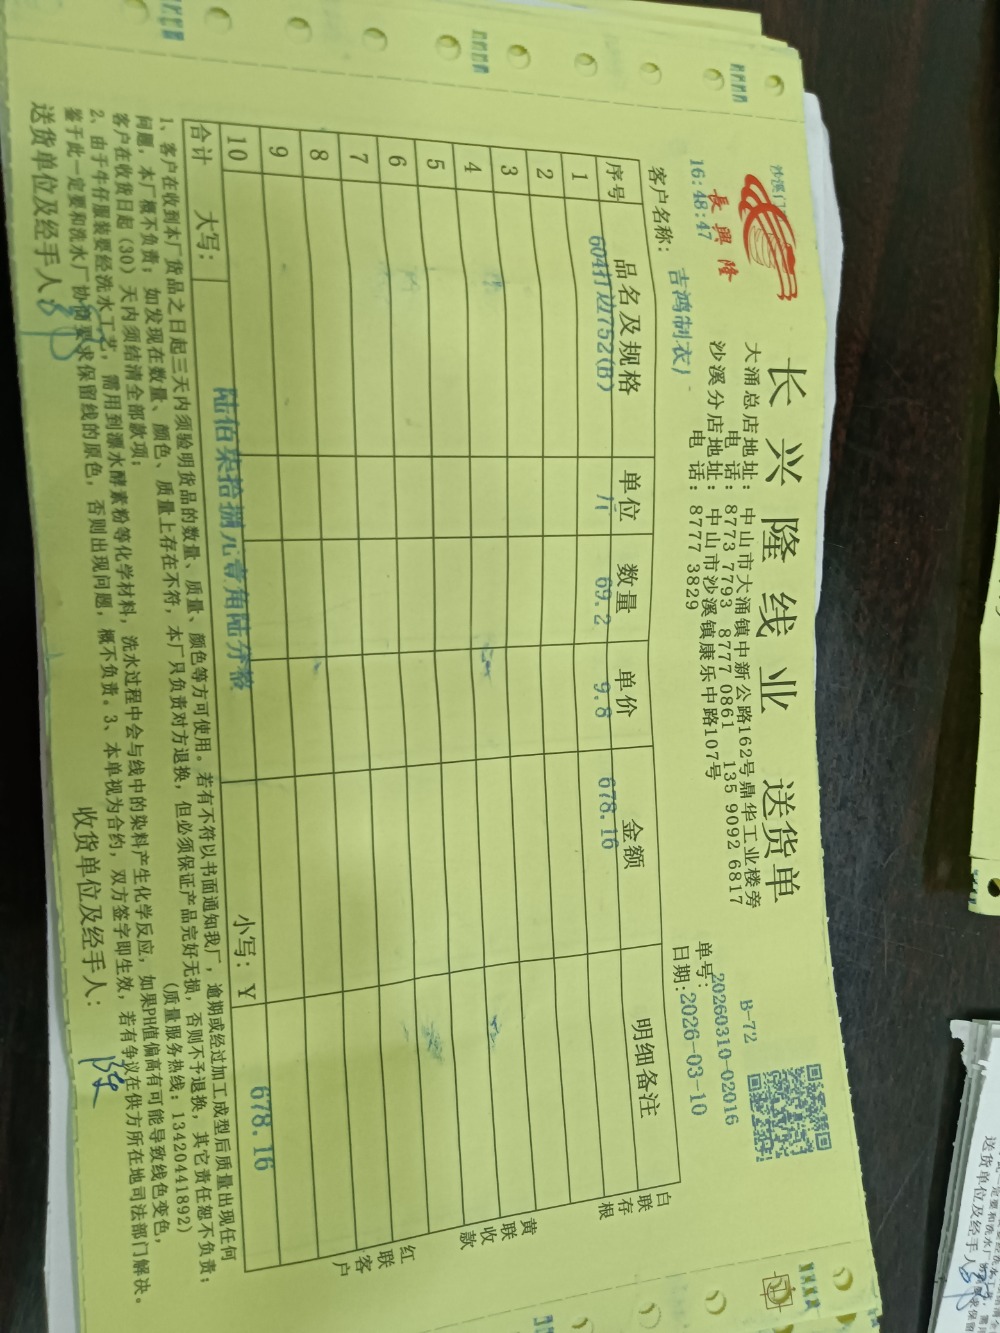 沙溪门
16:48:47
長興隆
长兴隆线业 送货单
大涌总店地址：中山市大涌镇中新公路162号鼎华工业楼旁
电 话：8773 7793 8777 0861 135 9092 6817
沙溪分店地址：中山市沙溪镇康乐中路107号
电 话：8777 3829
B-72
单号：20260310-02016
日期：2026-03-10
客户名称：吉鸿制衣厂
序号 品名及规格 单位 数量 单价 金额 明细备注
1 604打边752(B) 69.2 9.8 678.16
2
3
4
5
6
7
8
9
10
合计 大写：陆佰柒拾捌元壹角陆分整 小写：Y 678.16
白联存根
黄联收款
红联客户
1、客户在收到本厂货品之日起三天内须验明货品的数量、质量、颜色等方可使用。若有不符以书面通知我厂，逾期或经过加工成型后质量出现任何
问题，本厂概不负责；如发现在数量、颜色、质量上存在不符，本厂只负责对方退换，但必须保证产品完好无损，否则不予退换，其它责任恕不负责；
客户在收货日起（30）天内须结清全部款项； (质量服务热线：13420441892)
2、由于牛仔服装要经洗水工艺，需用到漂水酵素粉等化学材料，洗水过程中会与线中的染料产生化学反应，如果PH值偏高有可能导致线色变色，
鉴于此一定要和洗水厂协商要求保留线的原色，否则出现问题，概不负责。3、本单视为合约，双方签字即生效，若有争议在供方所在地司法部门解决。
送货单位及经手人： 收货单位及经手人：
送货单位及经手人